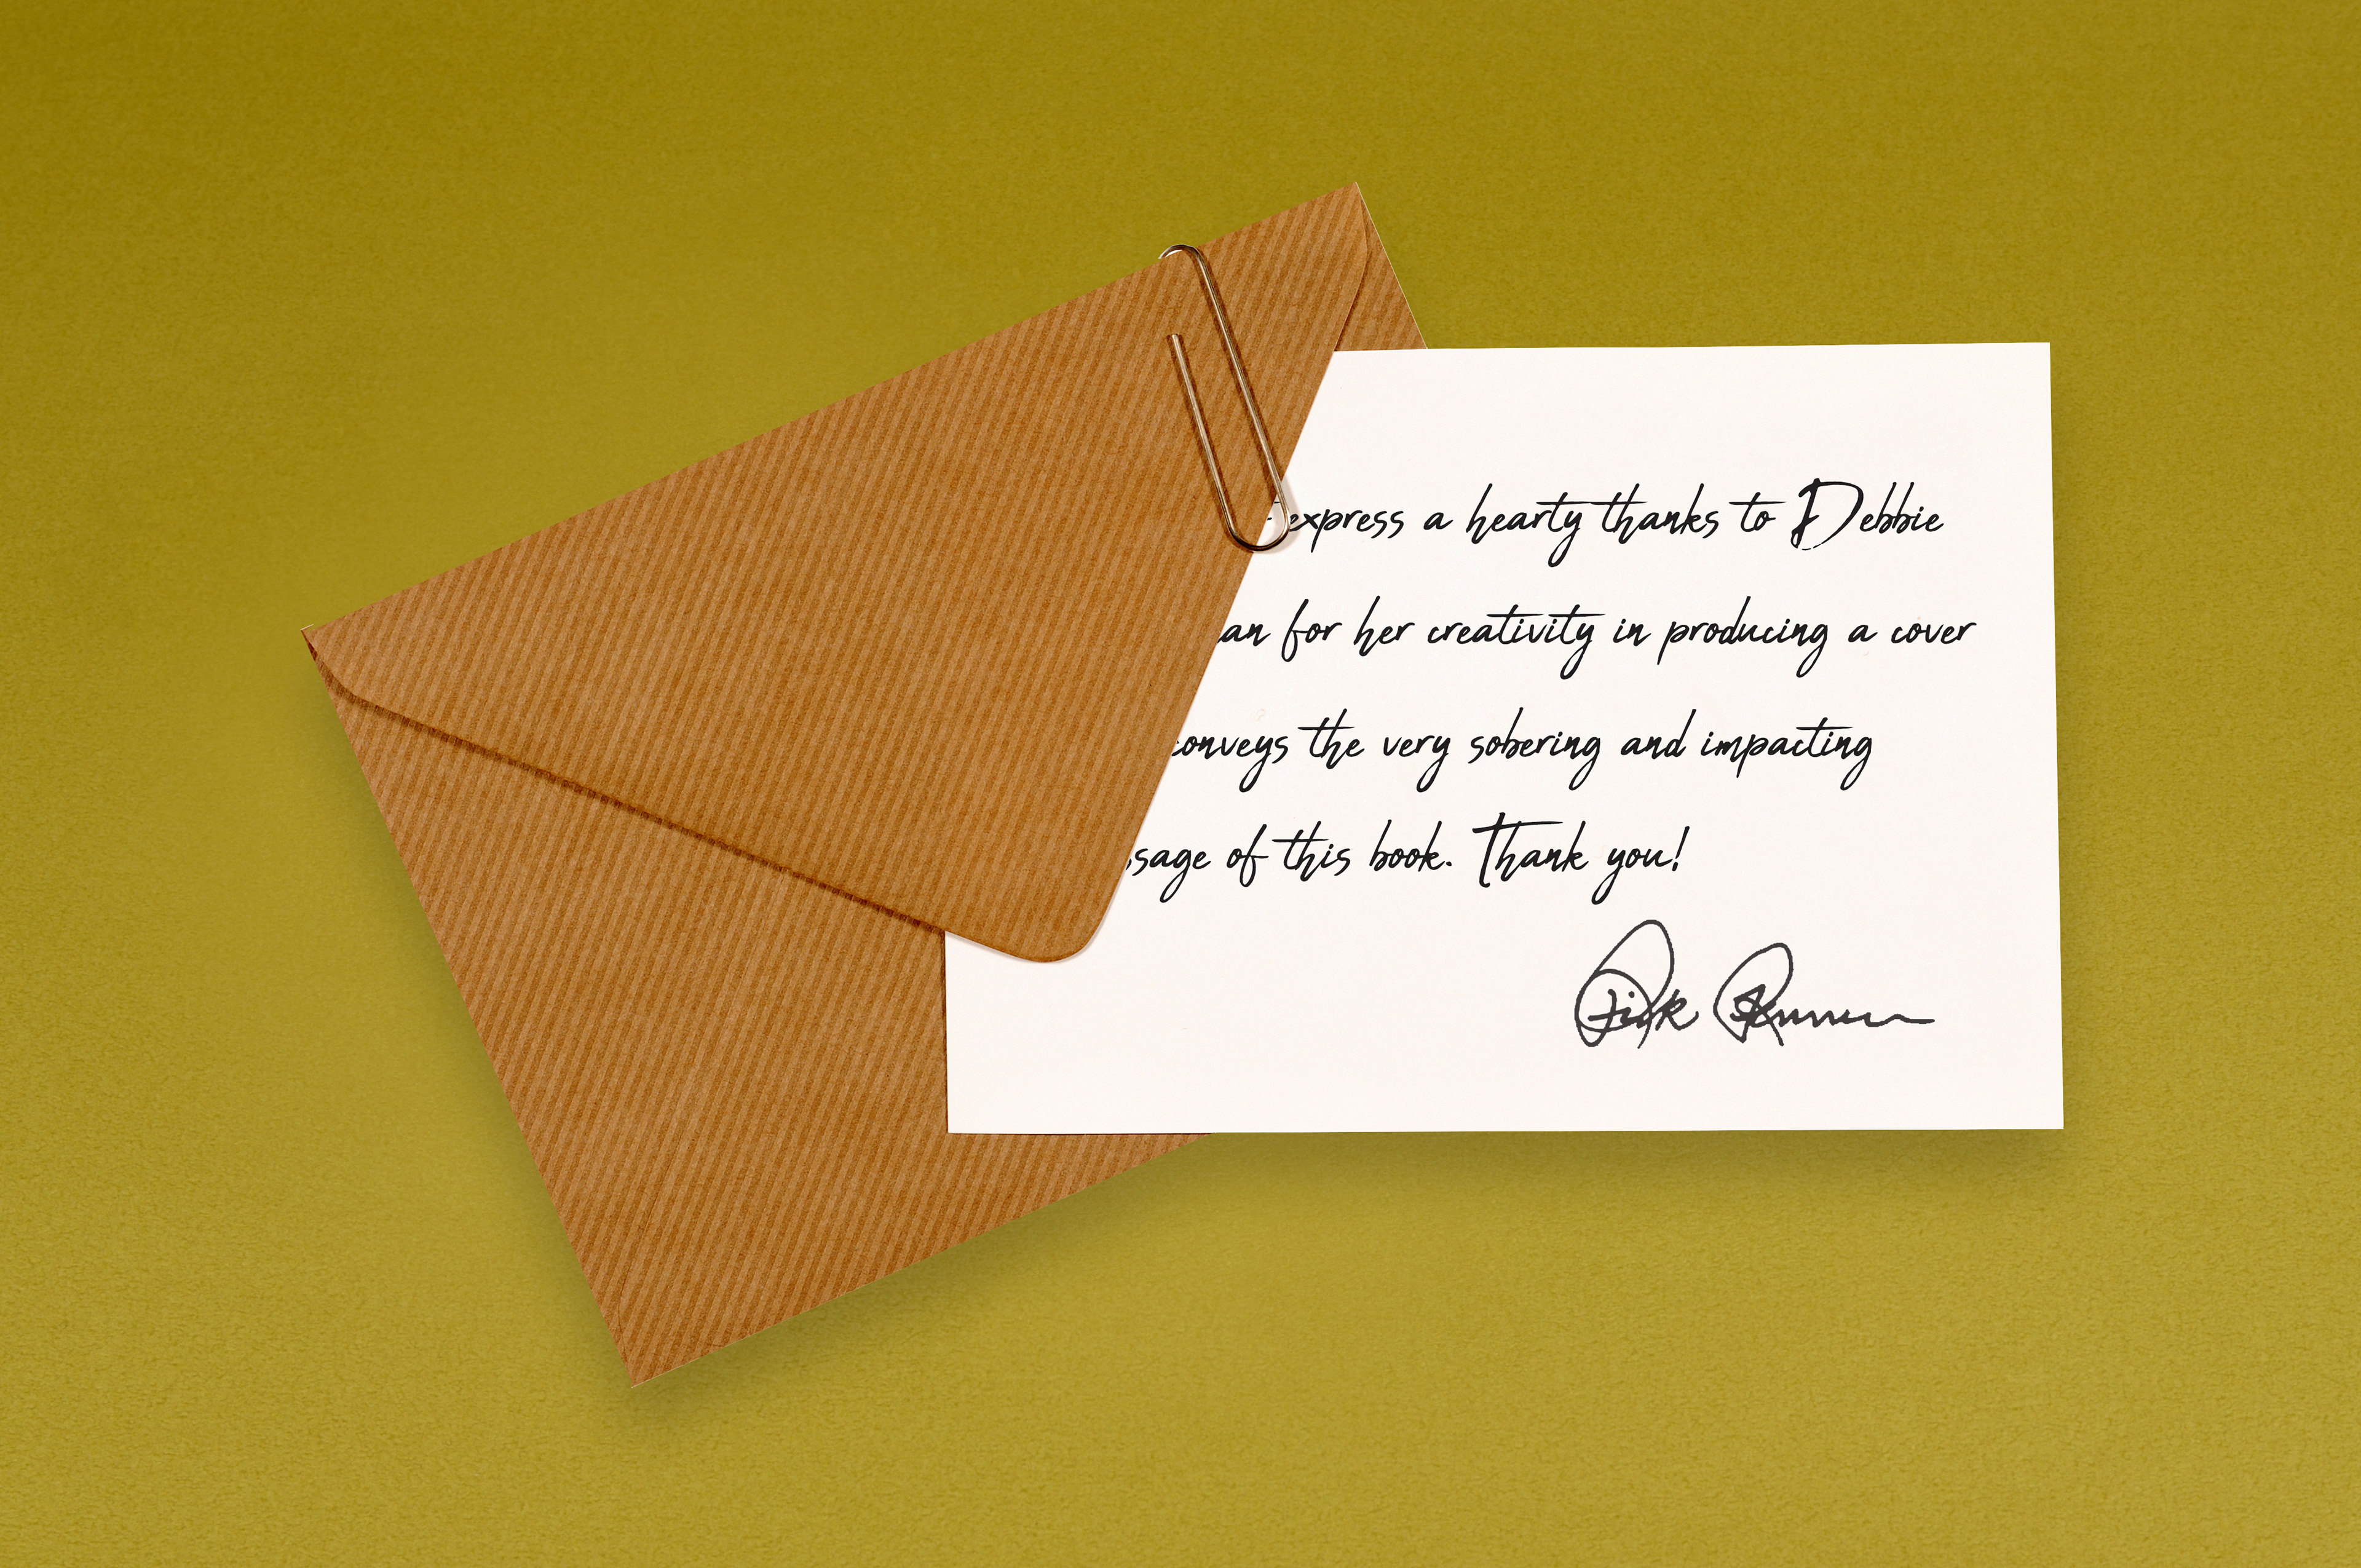 express a hearty thanks to Debbie
for her creativity in producing a cover
conveys the very sobering and impacting
of this book. Thank you!